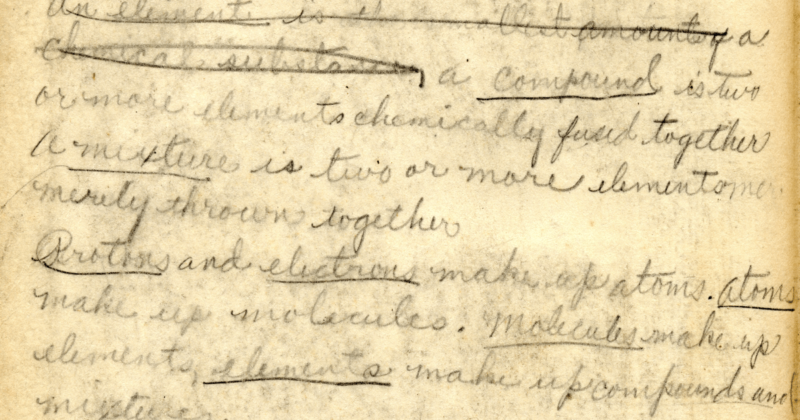 An element is the smallest amount of a
chemical substance, a compound is two
or more elements chemically fused together
A mixture is two or more elements mer
merely thrown together
Protons and electrons make up atoms. Atoms
make up molecules. Molecules make up
elements, elements make up compounds and
mixture